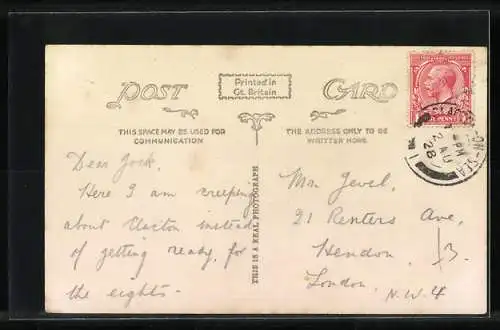 POST CARD
Printed in
Gt. Britain
THIS SPACE MAY BE USED FOR
COMMUNICATION
THE ADDRESS ONLY TO BE
WRITTEN HERE
THIS IS A REAL PHOTOGRAPH
Dear Jock,
Here I am creeping
about Clacton instead
of getting ready, for
the eights.
Mon Jevel,
21 Renters Ave,
Hendon,
London.
N.W.4
PENNY
CLACTON-ON-SEA
PM
2 AU
28